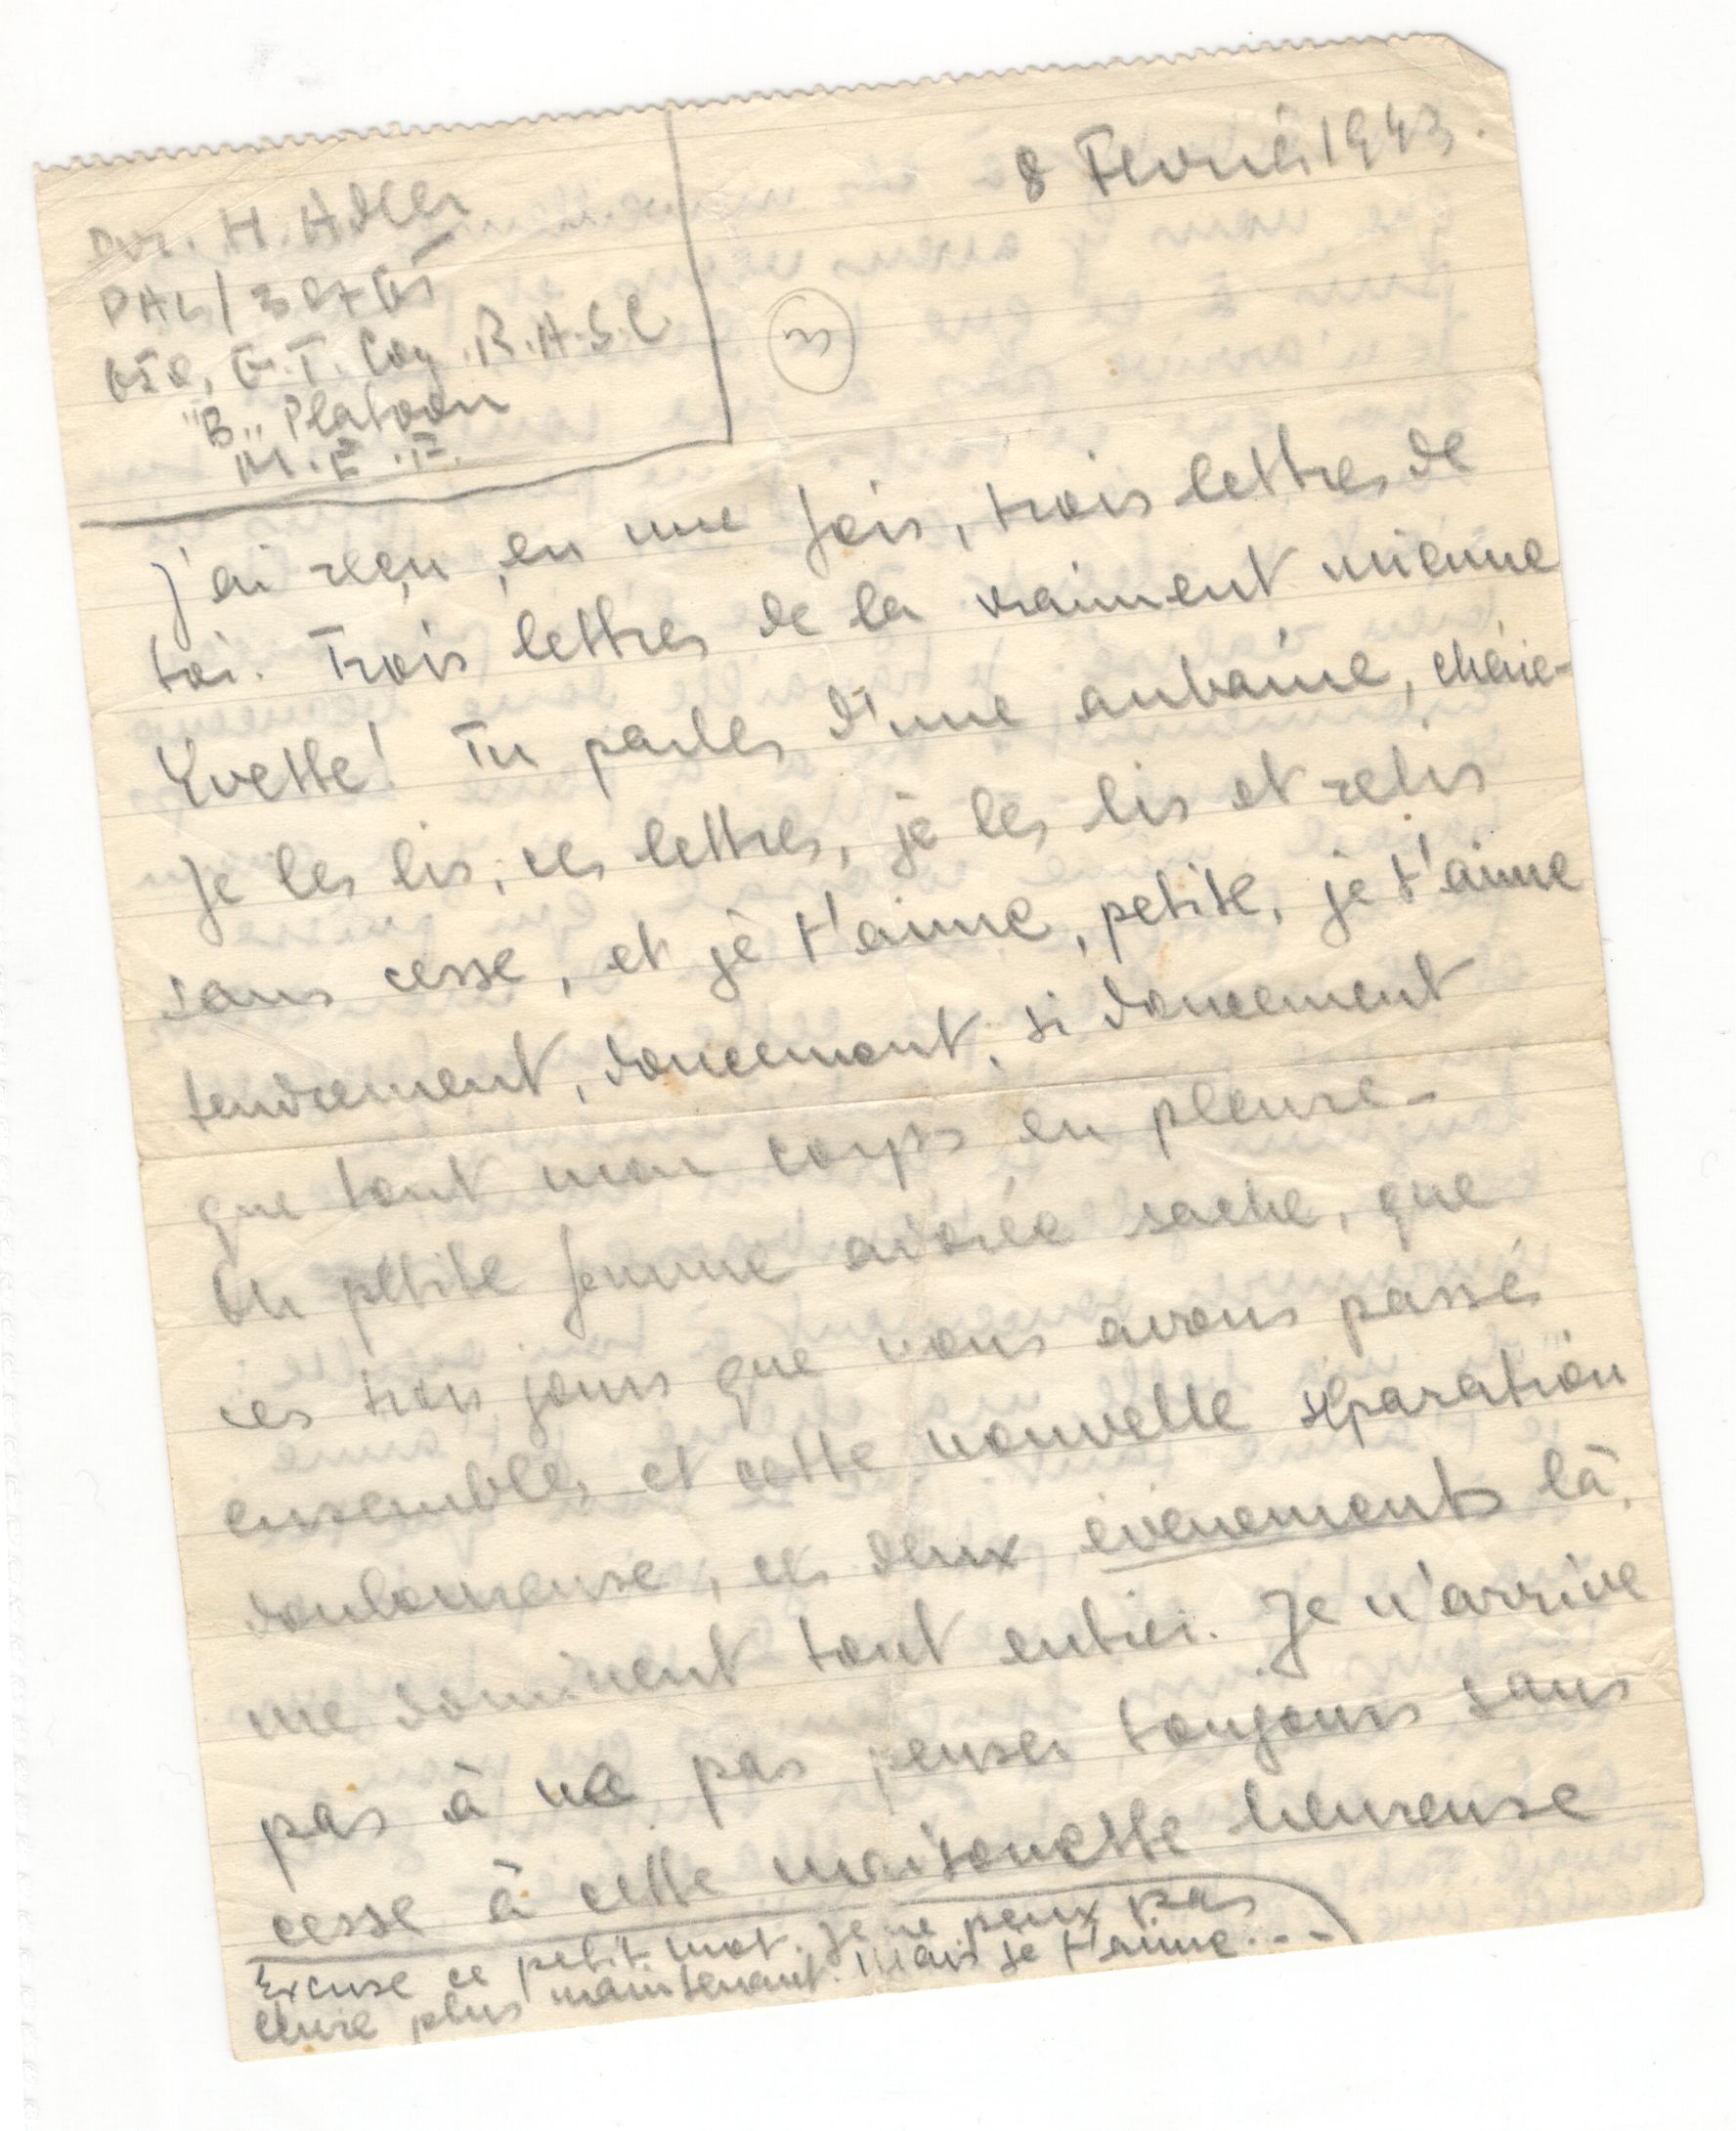 8 Fevrier 1943.
Dvr. H. Adler
PAL/30765
G.T. Coy. R.A.S.C.
"B" Platoon
M.E.F.
3
J'ai reçu, en une fois, trois lettres de
toi. Trois lettres de la vraiment mienne
Yvette! Tu parles d'une aubaine, chérie-
Je les lis, ces lettres, je les lis et relis
sans cesse, et je t'aime, petite, je t'aime
tendrement, doucement, si doucement
que tout mon corps en pleure-
Ou petite femme adorée sache, que
ces trois jours que nous avons passés
ensembles et cette nouvelle séparation
douloureuse, ces deux évènements là,
me dominent tout entier. Je n'arrive
pas à ne pas penser toujours sans
cesse à cette maisonette heureuse
Excuse ce petit mot. Je ne peux pas
écrire plus maintenant. Mais je t'aime...